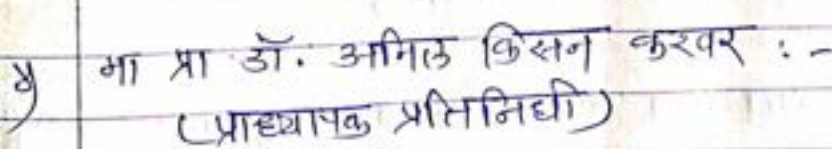 ५) मा प्रा डॉ. अनिल किसन करवर :-
(प्राध्यापक प्रतिनिधी)